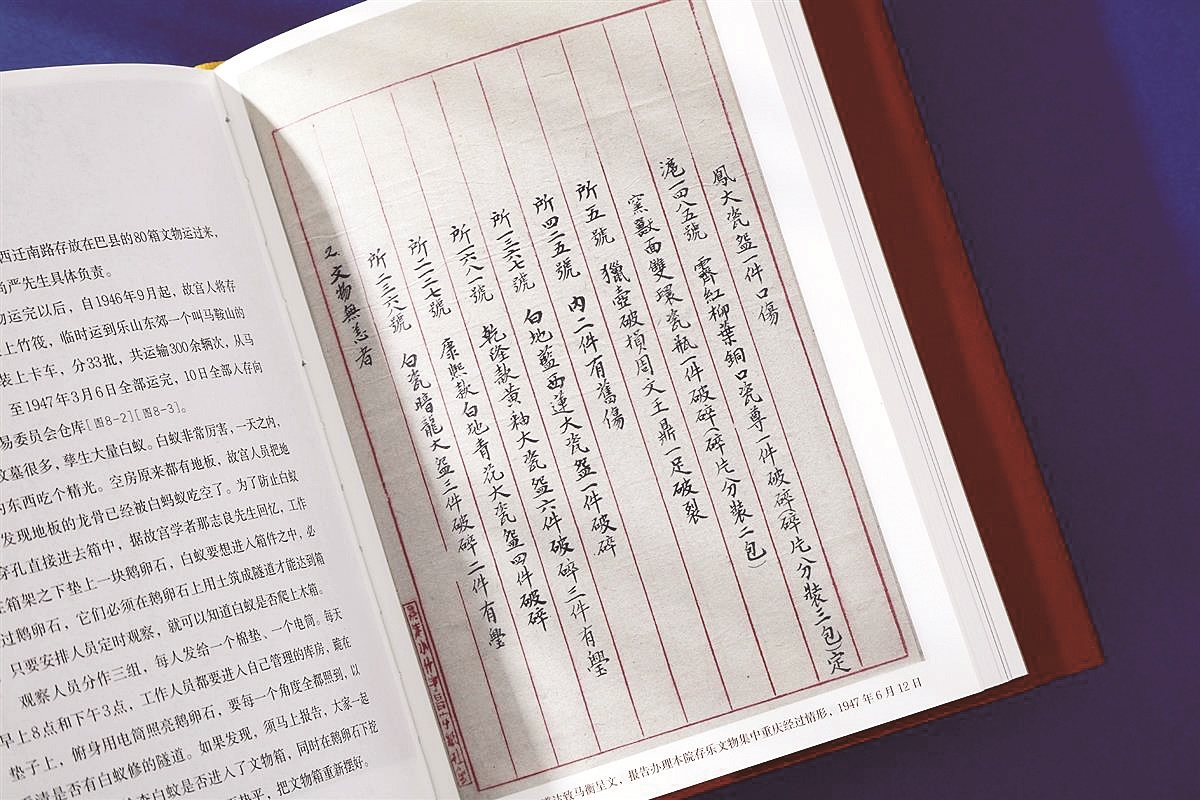 西迁南路存放在巴县的80箱文物运过来,
尚严先生具体负责。
物运完以后，自1946年9月起，故宫人将存
上竹筏，临时运到乐山东郊一个叫马鞍山的
装上卡车，分33批，共运输300余辆次，从马
至1947年3月6日全部运完，10日全部入存向
易委员会仓库[图8-2][图8-3]。
坟墓很多，孳生大量白蚁。白蚁非常厉害，一天之内，
东西吃个精光。空房原来都有地板，故宫人员把地
发现地板的龙骨已经被白蚂蚁吃空了。为了防止白蚁
穿孔直接进去箱中，据故宫学者那志良先生回忆，工作
箱架之下垫上一块鹅卵石，白蚁要想进入箱件之中，必
过鹅卵石，它们必须在鹅卵石上用土筑成隧道才能达到箱
只要安排人员定时观察，就可以知道白蚁是否爬上木箱。
观察人员分作三组，每人发给一个棉垫，一个电筒。每天
早上8点和下午3点，工作人员都要进入自己管理的库房，跪在
垫子上，俯身用电筒照亮鹅卵石，要每一个角度全都照到，以
看清是否有白蚁修的隧道。如果发现，须马上报告，大家一起
查白蚁是否进入了文物箱，同时在鹅卵石下挖
垫平，把文物箱重新摆好。
鳳大瓷盌一件口傷
滬一四八五號 霽紅柳葉銅口瓷尊一件破碎(碎片分裝三包)定
窯獸面雙環瓷瓶一件破碎(碎片分裝二包)
所五號 獵壺破損周文王鼎一足破裂
所四二五號 內二件有舊傷
所一三六七號 白地藍西蓮大瓷盌一件破碎
所一六八一號 乾隆款黃釉大瓷盌六件破碎三件有璺
所二二二七號 康熙款白地青花大瓷盌四件破碎
所二三六號 白瓷暗龍大盌三件破碎二件有璺
2.文物無恙者
达致马衡呈文，报告办理本院存乐文物集中重庆经过情形，1947年6月12日